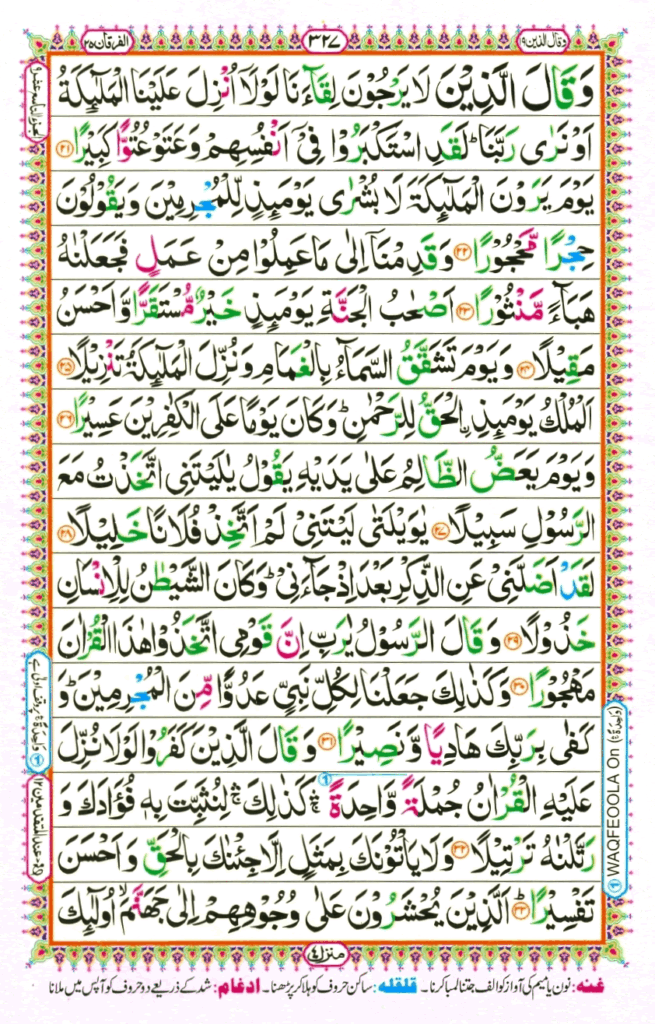 وقال الذين ١٩
٣٢٧
الفرقان ٢٥
وَقَالَ الَّذِيْنَ لَا يَرْجُوْنَ لِقَآءَنَا لَوْلَاۤ اُنْزِلَ عَلَيْنَا الْمَلٰٓئِكَةُ
اَوْ نَرٰى رَبَّنَا ؕ لَقَدِ اسْتَكْبَرُوْا فِيْۤ اَنْفُسِهِمْ وَعَتَوْ عُتُوًّا كَبِيْرًا ﴿٢١﴾
يَوْمَ يَرَوْنَ الْمَلٰٓئِكَةَ لَا بُشْرٰى يَوْمَئِذٍ لِّلْمُجْرِمِيْنَ وَيَقُوْلُوْنَ
حِجْرًا مَّحْجُوْرًا ﴿٢٢﴾ وَقَدِمْنَاۤ اِلٰى مَا عَمِلُوْا مِنْ عَمَلٍ فَجَعَلْنٰهُ
هَبَآءً مَّنْثُوْرًا ﴿٢٣﴾ اَصْحٰبُ الْجَنَّةِ يَوْمَئِذٍ خَيْرٌ مُّسْتَقَرًّا وَّاَحْسَنُ
مَقِيْلًا ﴿٢٤﴾ وَيَوْمَ تَشَقَّقُ السَّمَآءُ بِالْغَمَامِ وَنُزِّلَ الْمَلٰٓئِكَةُ تَنْزِيْلًا ﴿٢٥﴾
اَلْمُلْكُ يَوْمَئِذِ ۨالْحَقُّ لِلرَّحْمٰنِ ؕ وَكَانَ يَوْمًا عَلَى الْكٰفِرِيْنَ عَسِيْرًا ﴿٢٦﴾
وَيَوْمَ يَعَضُّ الظَّالِمُ عَلٰى يَدَيْهِ يَقُوْلُ يٰلَيْتَنِى اتَّخَذْتُ مَعَ
الرَّسُوْلِ سَبِيْلًا ﴿٢٧﴾ يٰوَيْلَتٰى لَيْتَنِيْ لَمْ اَتَّخِذْ فُلَانًا خَلِيْلًا ﴿٢٨﴾
لَقَدْ اَضَلَّنِيْ عَنِ الذِّكْرِ بَعْدَ اِذْ جَآءَنِيْ ؕ وَكَانَ الشَّيْطٰنُ لِلْاِنْسَانِ
خَذُوْلًا ﴿٢٩﴾ وَقَالَ الرَّسُوْلُ يٰرَبِّ اِنَّ قَوْمِى اتَّخَذُوْا هٰذَا الْقُرْاٰنَ
مَهْجُوْرًا ﴿٣٠﴾ وَكَذٰلِكَ جَعَلْنَا لِكُلِّ نَبِيٍّ عَدُوًّا مِّنَ الْمُجْرِمِيْنَ ؕ وَ
كَفٰى بِرَبِّكَ هَادِيًا وَّنَصِيْرًا ﴿٣١﴾ وَقَالَ الَّذِيْنَ كَفَرُوْا لَوْلَا نُزِّلَ
عَلَيْهِ الْقُرْاٰنُ جُمْلَةً وَّاحِدَةً ۛۚ كَذٰلِكَ ۛۚ لِنُثَبِّتَ بِهٖ فُؤَادَكَ وَ
رَتَّلْنٰهُ تَرْتِيْلًا ﴿٣٢﴾ وَلَا يَاْتُوْنَكَ بِمَثَلٍ اِلَّا جِئْنٰكَ بِالْحَقِّ وَاَحْسَنَ
تَفْسِيْرًا ﴿٣٣﴾ اَلَّذِيْنَ يُحْشَرُوْنَ عَلٰى وُجُوْهِهِمْ اِلٰى جَهَنَّمَ ۙ اُولٰٓئِكَ
WAQFEOOLA On (وَاحِدَةً)
منزل ٤
غنه: نون یا میم کی آواز کو الف جتنا لمبا کرنا۔ قلقله: ساکن حروف کو ہلا کر پڑھنا۔ ادغام: شد کے ذریعے دو حروف کو آپس میں ملانا